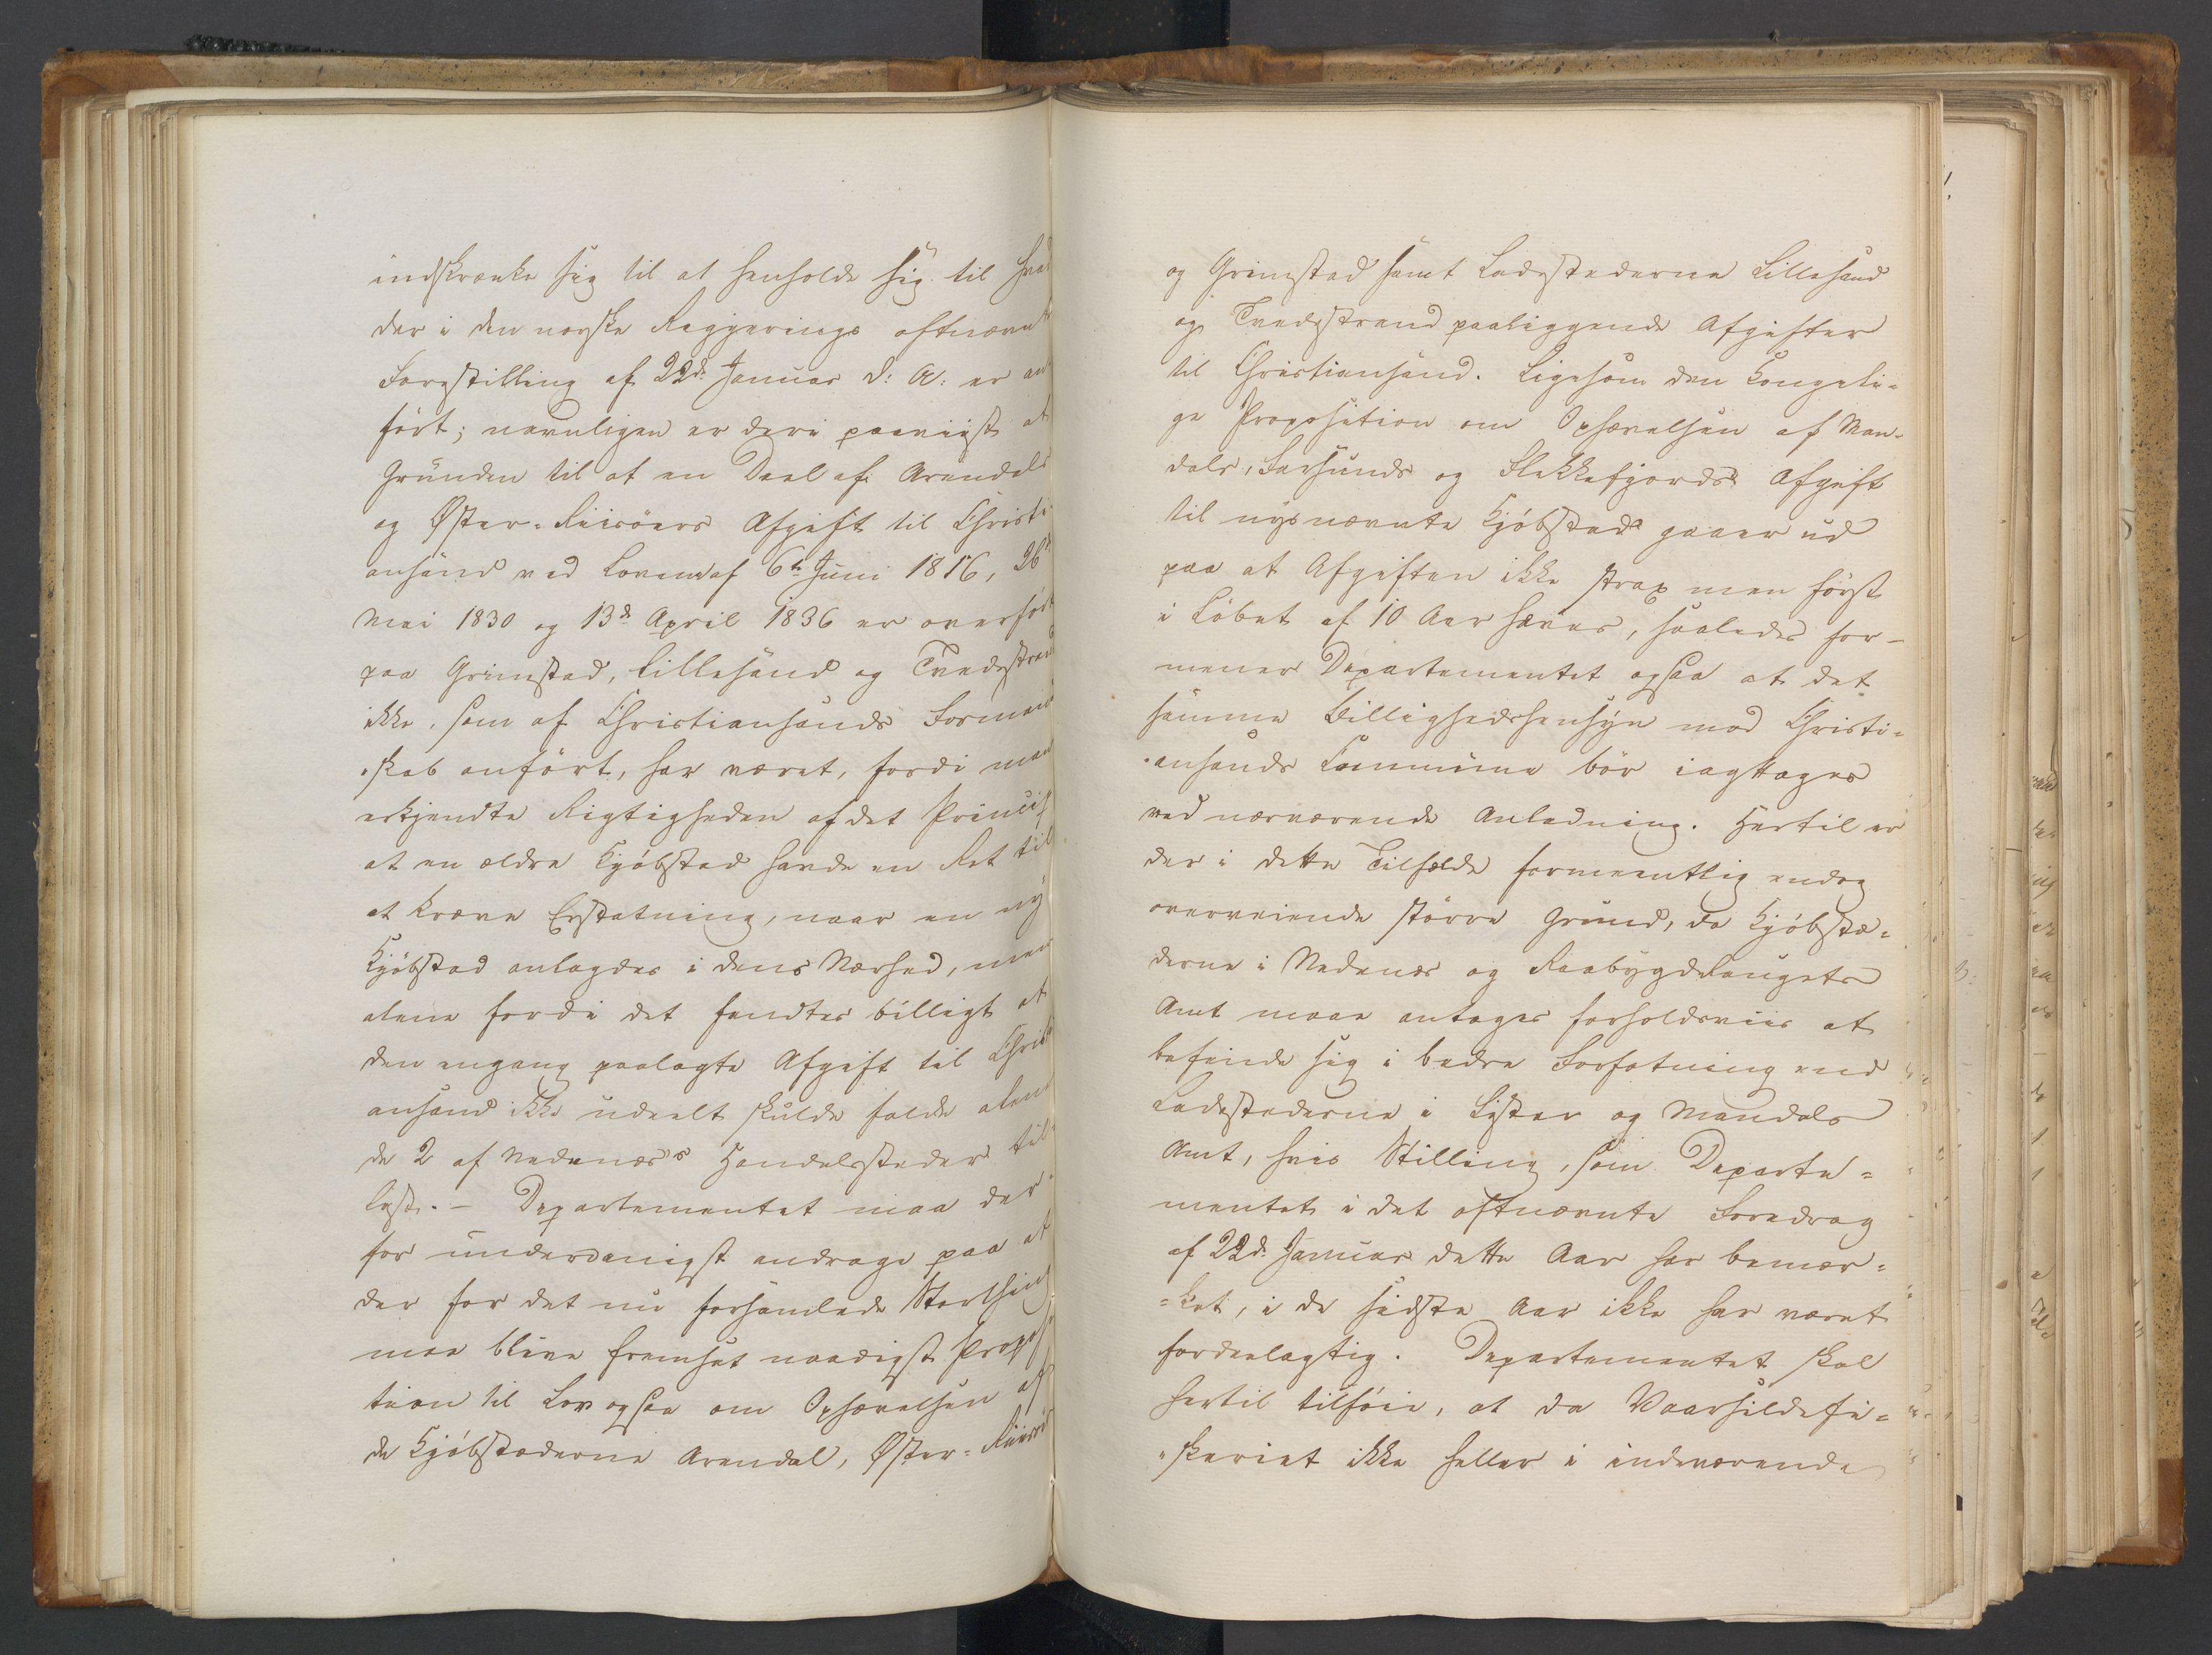 indskrænke sig til at henholde sig til hvad
der i den norske Regjerings oftnævnte
Forestilling af 22d. Januar d: A: er an-
ført; navnligen er deri paaviist at
Grunden til at en Deel af Arendals
og Øster-Riisöers Afgift til Christi-
ansand ved Loven af 6te Juni 1816, 26de
Mai 1830 og 13de April 1836 er overført
paa Grimstad, Lillesand og Tvedestrand
ikke, som af Christiansands Formand-
skab anført, har været, fordi man
erkjendte Rigtigheden af det Princip
at en ældre Kjöbstad havde en Ret til
at kræve Erstatning, naar en ny
Kjöbstad anlagdes i dens Nærhed, men
alene fordi det fandtes billigt at
den engang paalagte Afgift til Christi-
ansand ikke udeelt skulde falde alene
de 2 af Nedenæs's Handelssteder til
Last. – Departementet maa der-
for underdanigst andrage paa at
der for det nu forsamlede Storthing
maa blive fremsat naadigst Proposi-
tion til Lov ogsaa om Ophævelsen af
de Kjöbstæderne Arendal, Öster-Riisöer
og Grimstad samt Ladestederne Lillesand
og Tvedestrand paaliggende Afgifter
til Christiansand. Ligesom den Kongeli-
ge Proposition om Ophævelsen af Man-
dals, Farsunds og Flekkefjords Afgift
til nysnævnte Kjöbstad gaaer ud
paa at Afgiften ikke strax men först
i Löbet af 10 Aar hæves, saaledes for-
mener Departementet ogsaa at det
samme Billighedshensyn mod Christi-
ansands Commune bör iagttages
ved nærværende Anledning. Hertil er
der i dette Tilfælde formeentlig endog
overveiende større Grund, da Kjöbstæ-
derne i Nedenæs og Raabygdelaugets
Amt maae antages forholdsviis at
befinde sig i bedre Forfatning end
Ladestederne i Lister og Mandals
Amt, hvis Stilling, som Departe-
mentet i det oftnævnte Foredrag
af 22d. Januar dette Aar har bemær-
ket, i de sidste Aar ikke har været
fordeelagtig. Departementet skal
hertil tilföie, at da Vaarsildefi-
skeriet ikke heller i indeværende